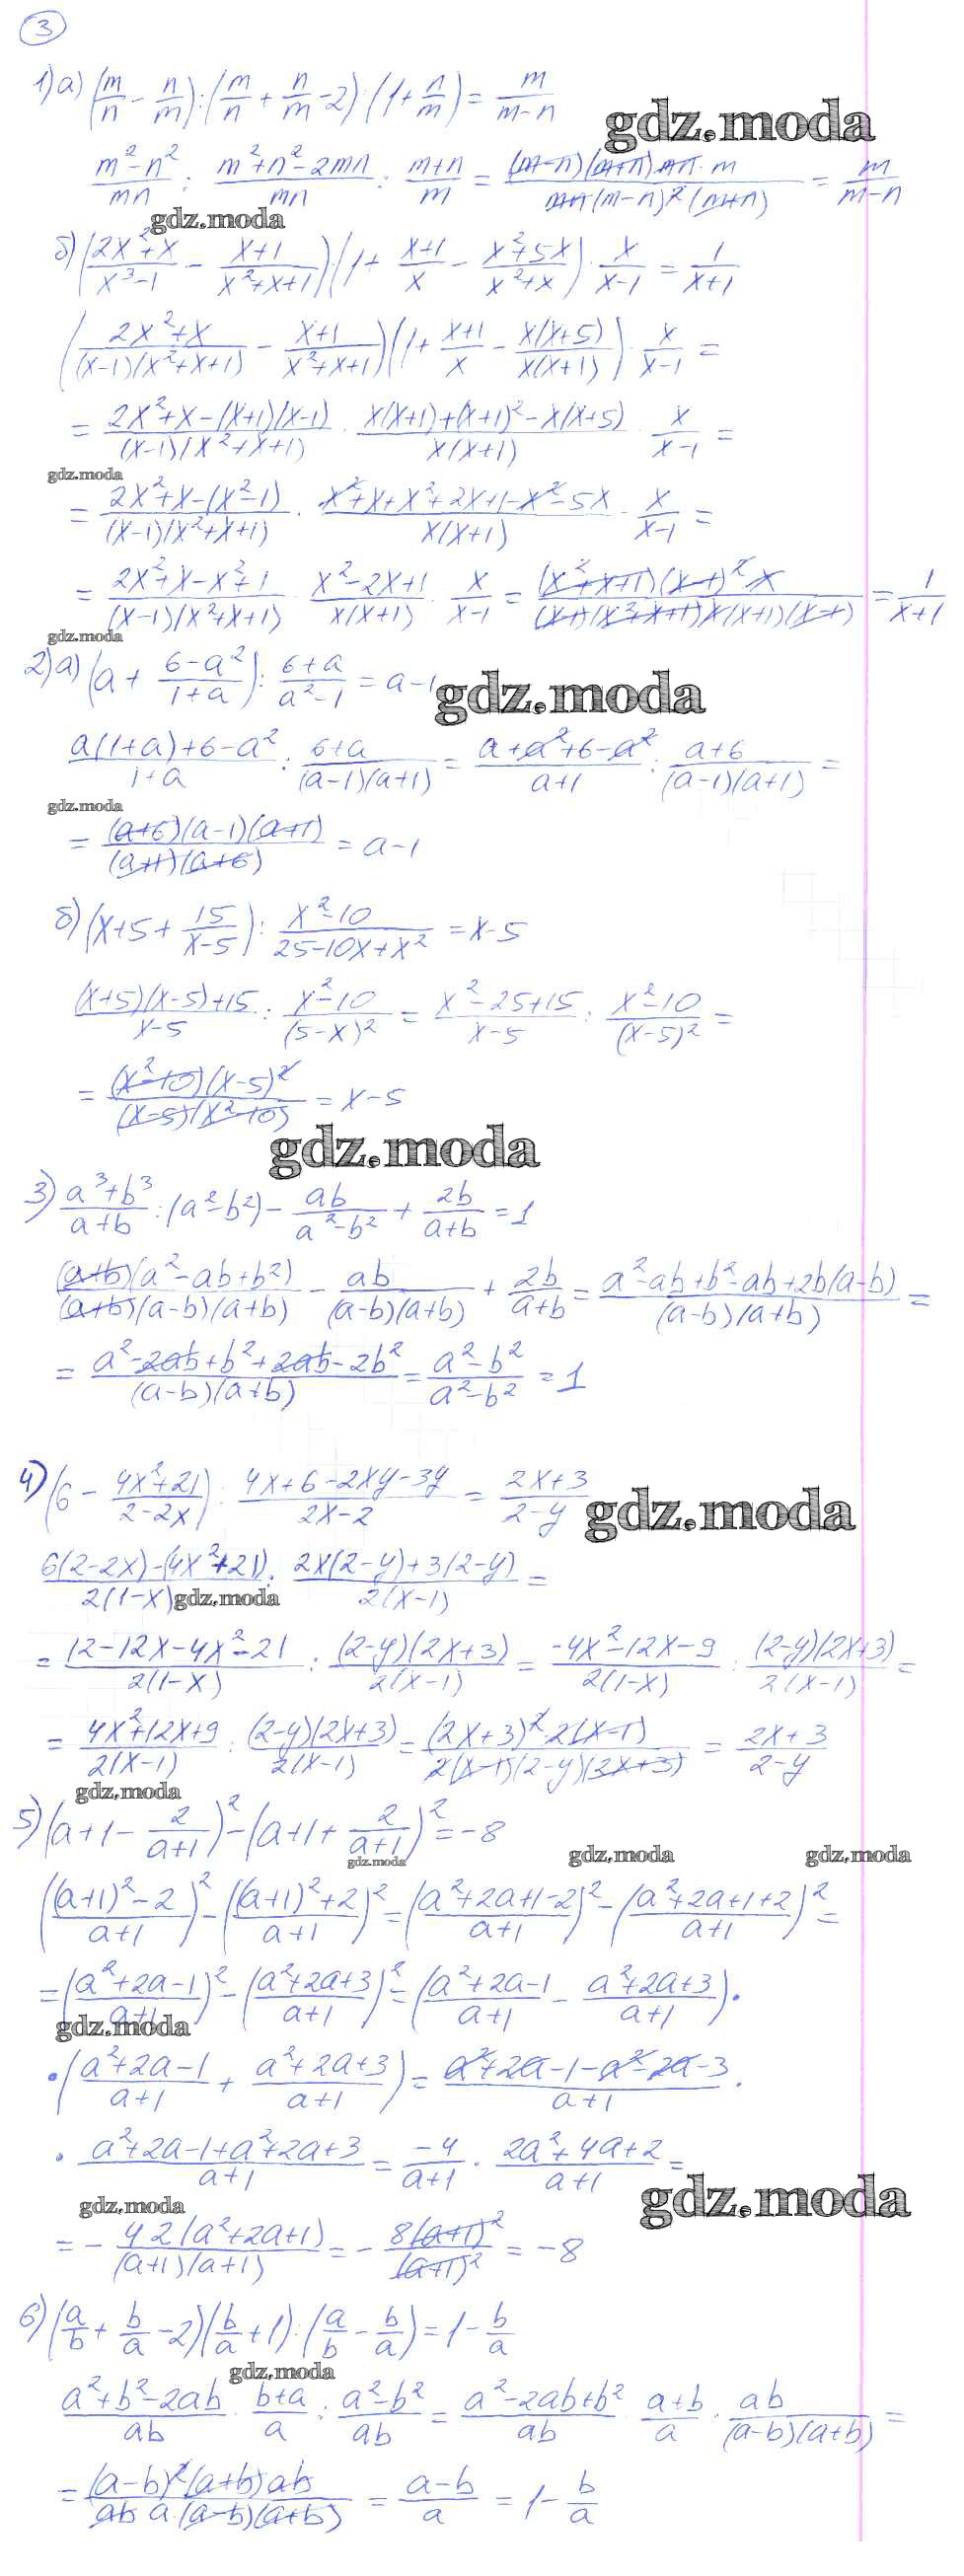 3
1) а) (m/n - n/m) : (m/n + n/m - 2) : (1 + n/m) = m/(m-n)
gdz.moda
(m²-n²)/(mn) : (m²+n²-2mn)/(mn) : (m+n)/m = ((m-n)(m+n)mn·m)/(mn(m-n)²(m+n)) = m/(m-n)
gdz.moda
б) ((2x²+x)/(x³-1) - (x+1)/(x²+x+1))(1 + (x+1)/x - (x²+5x)/(x²+x)) · x/(x-1) = 1/(x+1)
((2x²+x)/((x-1)(x²+x+1)) - (x+1)/(x²+x+1))(1 + (x+1)/x - x(x+5)/(x(x+1))) · x/(x-1) =
= (2x²+x-(x+1)(x-1))/((x-1)(x²+x+1)) · (x(x+1)+(x+1)²-x(x+5))/(x(x+1)) · x/(x-1) =
gdz.moda
= (2x²+x-(x²-1))/((x-1)(x²+x+1)) · (x²+x+x²+2x+1-x²-5x)/(x(x+1)) · x/(x-1) =
= (2x²+x-x²+1)/((x-1)(x²+x+1)) · (x²-2x+1)/(x(x+1)) · x/(x-1) = ((x²+x+1)(x-1)²x)/((x-1)(x²+x+1)x(x+1)(x-1)) = 1/(x+1)
gdz.moda
2) а) (a + (6-a²)/(1+a)) : (6+a)/(a²-1) = a-1
gdz.moda
(a(1+a)+6-a²)/(1+a) : (6+a)/((a-1)(a+1)) = (a+a²+6-a²)/(a+1) : (a+6)/((a-1)(a+1)) =
gdz.moda
= ((a+6)(a-1)(a+1))/((a+1)(a+6)) = a-1
б) (x+5 + 15/(x-5)) : (x²-10)/(25-10x+x²) = x-5
((x+5)(x-5)+15)/(x-5) : (x²-10)/((5-x)²) = (x²-25+15)/(x-5) : (x²-10)/((x-5)²) =
= ((x²-10)(x-5)²)/((x-5)(x²-10)) = x-5
gdz.moda
3) (a³+b³)/(a+b) : (a²-b²) - ab/(a²-b²) + 2b/(a+b) = 1
((a+b)(a²-ab+b²))/((a+b)(a-b)(a+b)) - ab/((a-b)(a+b)) + 2b/(a+b) = (a²-ab+b²-ab+2b(a-b))/((a-b)(a+b)) =
= (a²-2ab+b²+2ab-2b²)/((a-b)(a+b)) = (a²-b²)/(a²-b²) = 1
4) (6 - (4x²+21)/(2-2x)) : (4x+6-2xy-3y)/(2x-2) = (2x+3)/(2-y)
gdz.moda
(6(2-2x)-(4x²+21))/(2(1-x)) : (2x(2-y)+3(2-y))/(2(x-1)) =
gdz.moda
= (12-12x-4x²-21)/(2(1-x)) : ((2-y)(2x+3))/(2(x-1)) = (-4x²-12x-9)/(2(1-x)) : ((2-y)(2x+3))/(2(x-1)) =
= (4x²+12x+9)/(2(x-1)) : ((2-y)(2x+3))/(2(x-1)) = ((2x+3)²·2(x-1))/(2(x-1)(2-y)(2x+3)) = (2x+3)/(2-y)
gdz.moda
5) (a+1 - 2/(a+1))² - (a+1 + 2/(a+1))² = -8
gdz.moda gdz.moda gdz.moda
(((a+1)²-2)/(a+1))² - (((a+1)²+2)/(a+1))² = ((a²+2a+1-2)/(a+1))² - ((a²+2a+1+2)/(a+1))² =
= ((a²+2a-1)/(a+1))² - ((a²+2a+3)/(a+1))² = ((a²+2a-1)/(a+1) - (a²+2a+3)/(a+1)) ·
gdz.moda
· ((a²+2a-1)/(a+1) + (a²+2a+3)/(a+1)) = (a²+2a-1-a²-2a-3)/(a+1) ·
· (a²+2a-1+a²+2a+3)/(a+1) = -4/(a+1) · (2a²+4a+2)/(a+1) =
gdz.moda gdz.moda
= - (4·2(a²+2a+1))/((a+1)(a+1)) = - (8(a+1)²)/((a+1)²) = -8
6) (a/b + b/a - 2)(b/a + 1) : (a/b - b/a) = 1 - b/a
gdz.moda
(a²+b²-2ab)/(ab) · (b+a)/a : (a²-b²)/(ab) = (a²-2ab+b²)/(ab) · (a+b)/a · ab/((a-b)(a+b)) =
= ((a-b)²(a+b)ab)/(ab·a·(a-b)(a+b)) = (a-b)/a = 1 - b/a